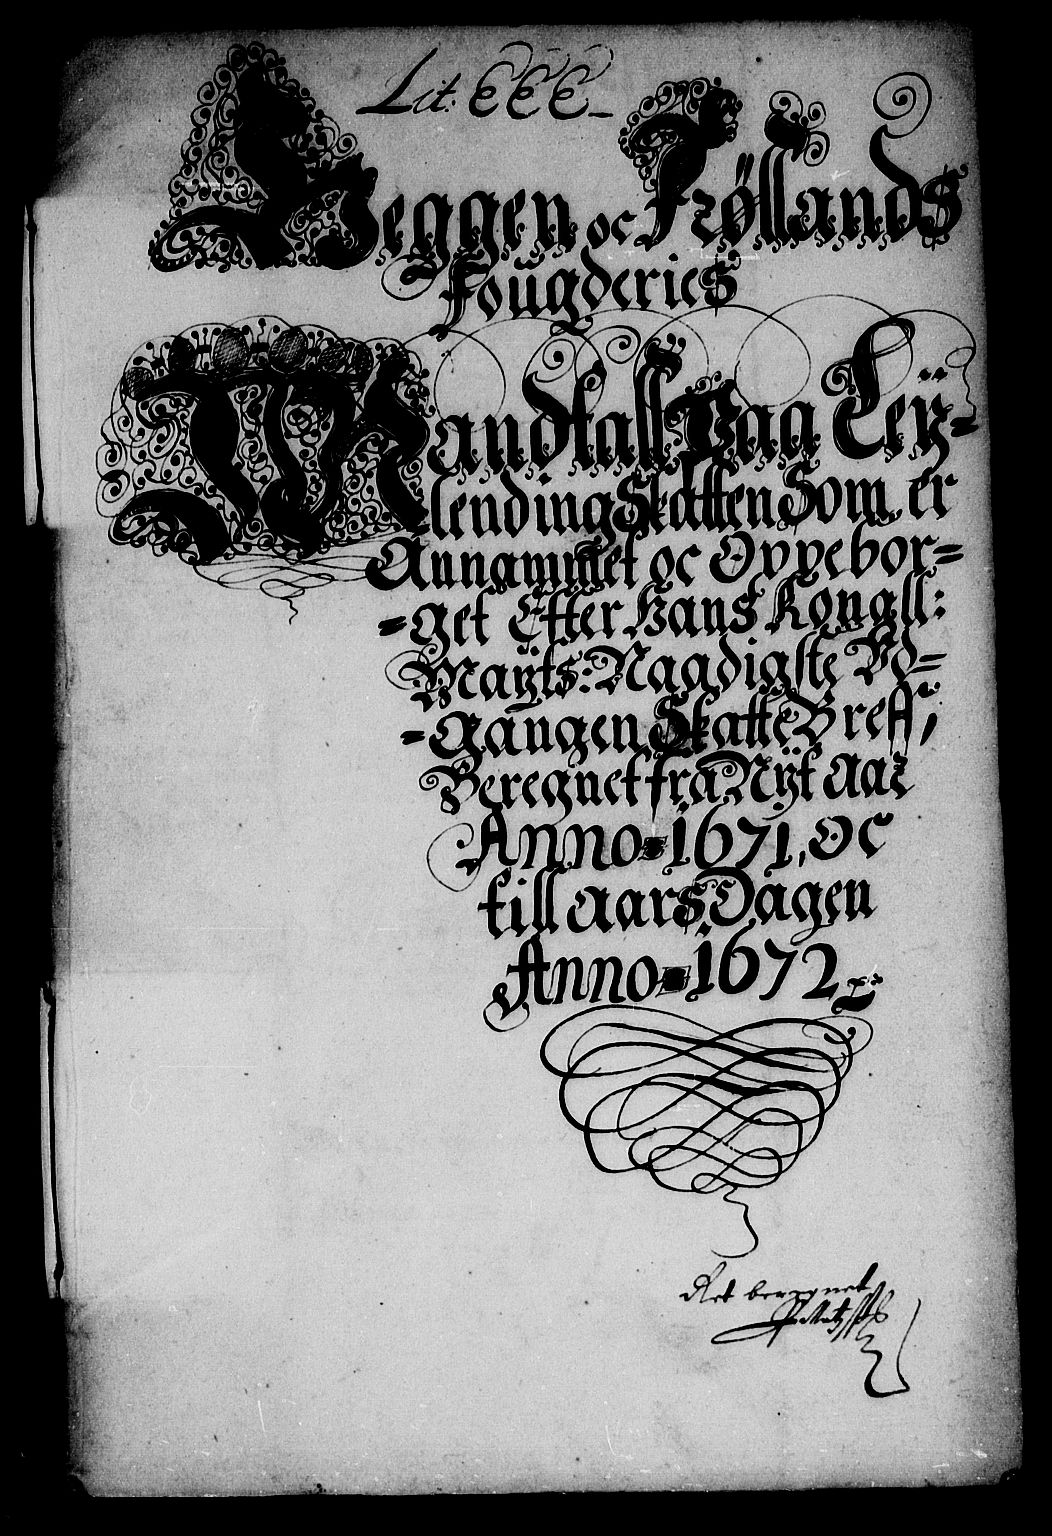 Lit. EEE
Heggen oc Frøllands
Foügderies
Mandtall Paa Leÿ-
lending Skatten Som er
Annammet oc Oppebor=
=get Effter Hans Kongll:
Maÿts: Naadigste Vd=
=gangen Skatte Breff,
Beregnet fra Nÿt Aar
Anno 1671, oc
till Aars Dagen
Anno 1672
Ret beregnet